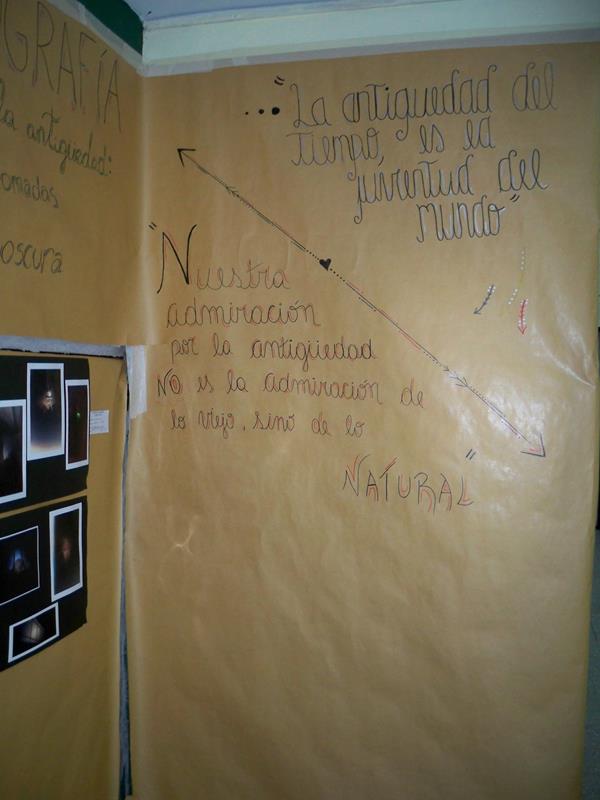 OGRAFÍA
la antigüedad:
omadas
oscura
..."La antiguedad del
tiempo, es la
juventud del
mundo"
"Nuestra
admiración
por la antigüedad
NO es la admiración de
lo viejo, sino de lo
NATURAL"